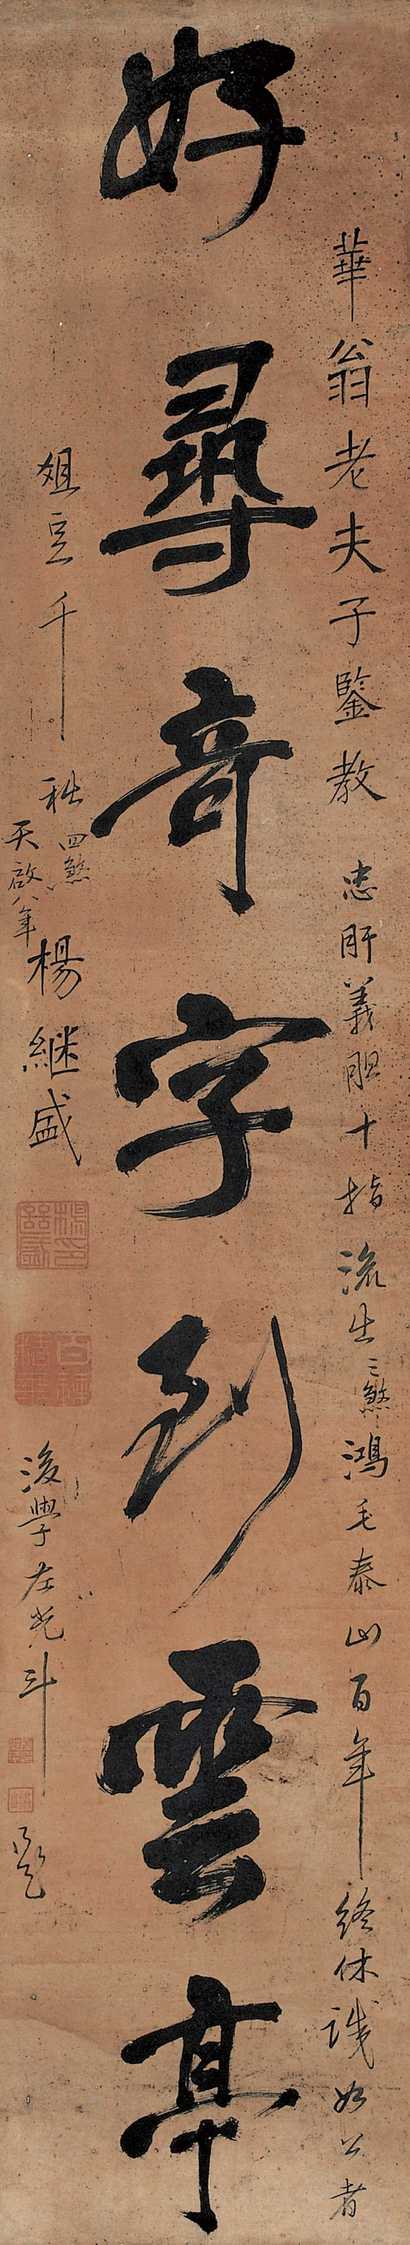 華翁老夫子鑒教
忠肝義胆十指流生三煞鴻毛泰山百年終休識如公者
好尋奇字到雲亭
俎豆千秋四煞
天啟八年
楊繼盛
後學左光斗題